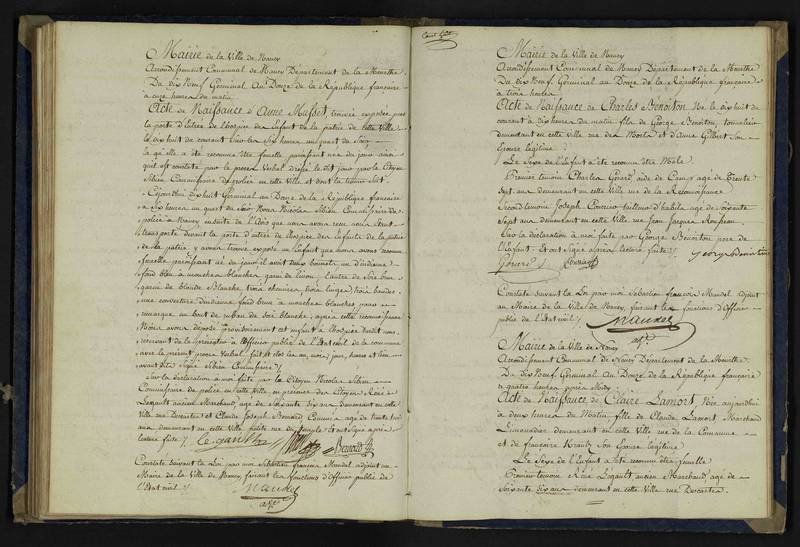 Mairie de la Ville de Nancy
Arrondissement Communal de Nancy Département de la Meurthe
Du dix Neuf Germinal an Douze de la République française
a onze heures du matin
Acte de Naissance d'Anne Musset, trouvée exposée
la porte d'Entrée de l'hospice des Enfants de la patrie de cette Ville
le dix huit du courant Sur les Six heures un quart du Soir
la qu'elle a été reconnue être femelle paraissant née du jour ainsi
qu'il est constaté par le procès Verbal dressé le dit jour par le Citoyen
Commissaire de police en cette Ville et dont la teneur suit
Cejourdhui dix huit Germinal an Douze de la République française
a Six heures un quart du Soir Nous Nicolas Commissaire de
police a Nancy ensuite de l'avis que nous avons reçu nous
transporté devant la porte d'entrée de l'hospice des Enfants de la patrie
de la patrie y avons trouvé exposé un Enfant que nous avons reconnu
femelle paraissant né du jour il avait deux bonnets un d'indienne
fond bleu a mouches blanches garni de linon l'autre de Soie
garni de blonde Blanche, trois chemises, trois linges, trois bandes
une couverture d'indienne fond brun a mouches blanches pour
remarque un bout de ruban de Soie blanche, après cette reconnaissance
Nous avons déposé provisoirement cet enfant a l'hospice
réservant de la présenter a l'officier public de l'Etat civil de la commune
avec le présent procès Verbal fait et clos les an, mois, jour, heures et lieu
avant dits Signé
Sur la déclaration a moi faite par le Citoyen Nicolas
Commissaire de police en cette Ville, en présence des Citoyens René
Legault ancien Marchand, agé de Soixante Six ans demeurant en cette
Ville rue Descartes et Claude Joseph Bernard Commis agé de trente
ans demeurant en cette Ville rue du temple Et ont Signé après
lecture faite
Bernard
Constaté Suivant la Loi par moi Sébastien françois Mandel adjoint au
Maire de la Ville de Nancy faisant les fonctions d'officier public de
l'Etat civil
Mandel
adjt
Mairie de la Ville de Nancy
Arrondissement Communal de Nancy Département de la Meurthe
Du dix Neuf Germinal an Douze de la République française
a trois heures
Acte de Naissance de Charles Benoiton Né le dix huit du
courant à dix heures du matin fils de George Benoiton, tonnelier
demeurant en cette Ville rue des Morts et d'Anne Gilbert Son
Epouse légitime
Le Sexe de l'Enfant a été reconnu être Male
Premier temoin Charles Gérard, aide de Camp agé de Trente
Sept ans demeurant en cette Ville rue de la Reconnaissance
Second temoin Joseph tailleur d'habits agé de Soixante
Sept ans demeurant en cette Ville rue Jean Jacques Rousseau
Sur la déclaration à moi faite par George Benoiton père de
l'Enfant, Et ont Signé après lecture faite
Gerard
Constaté Suivant la Loi par moi Sébastien françois Mandel adjoint
au Maire de la Ville de Nancy, faisant les fonctions d'Officier
public de l'Etat civil
Mandel
adjt
Mairie de la Ville de Nancy
Arrondissement Communal de Nancy Département de la Meurthe
Du dix Neuf Germinal an Douze de la République française
a quatre heures après Midy
Acte de Naissance de Claire Lamort, Née aujourdhui
à deux heures du Matin fille de Claude Lamort, Marchand
Limonadier demeurant en cette Ville rue de la Commune
et de françoise Krantz Son Epouse légitime
Le Sexe de l'Enfant a été reconnu être femelle
Premier temoin René Legault, ancien Marchand agé de
Soixante Six ans demeurant en cette Ville rue Descartes